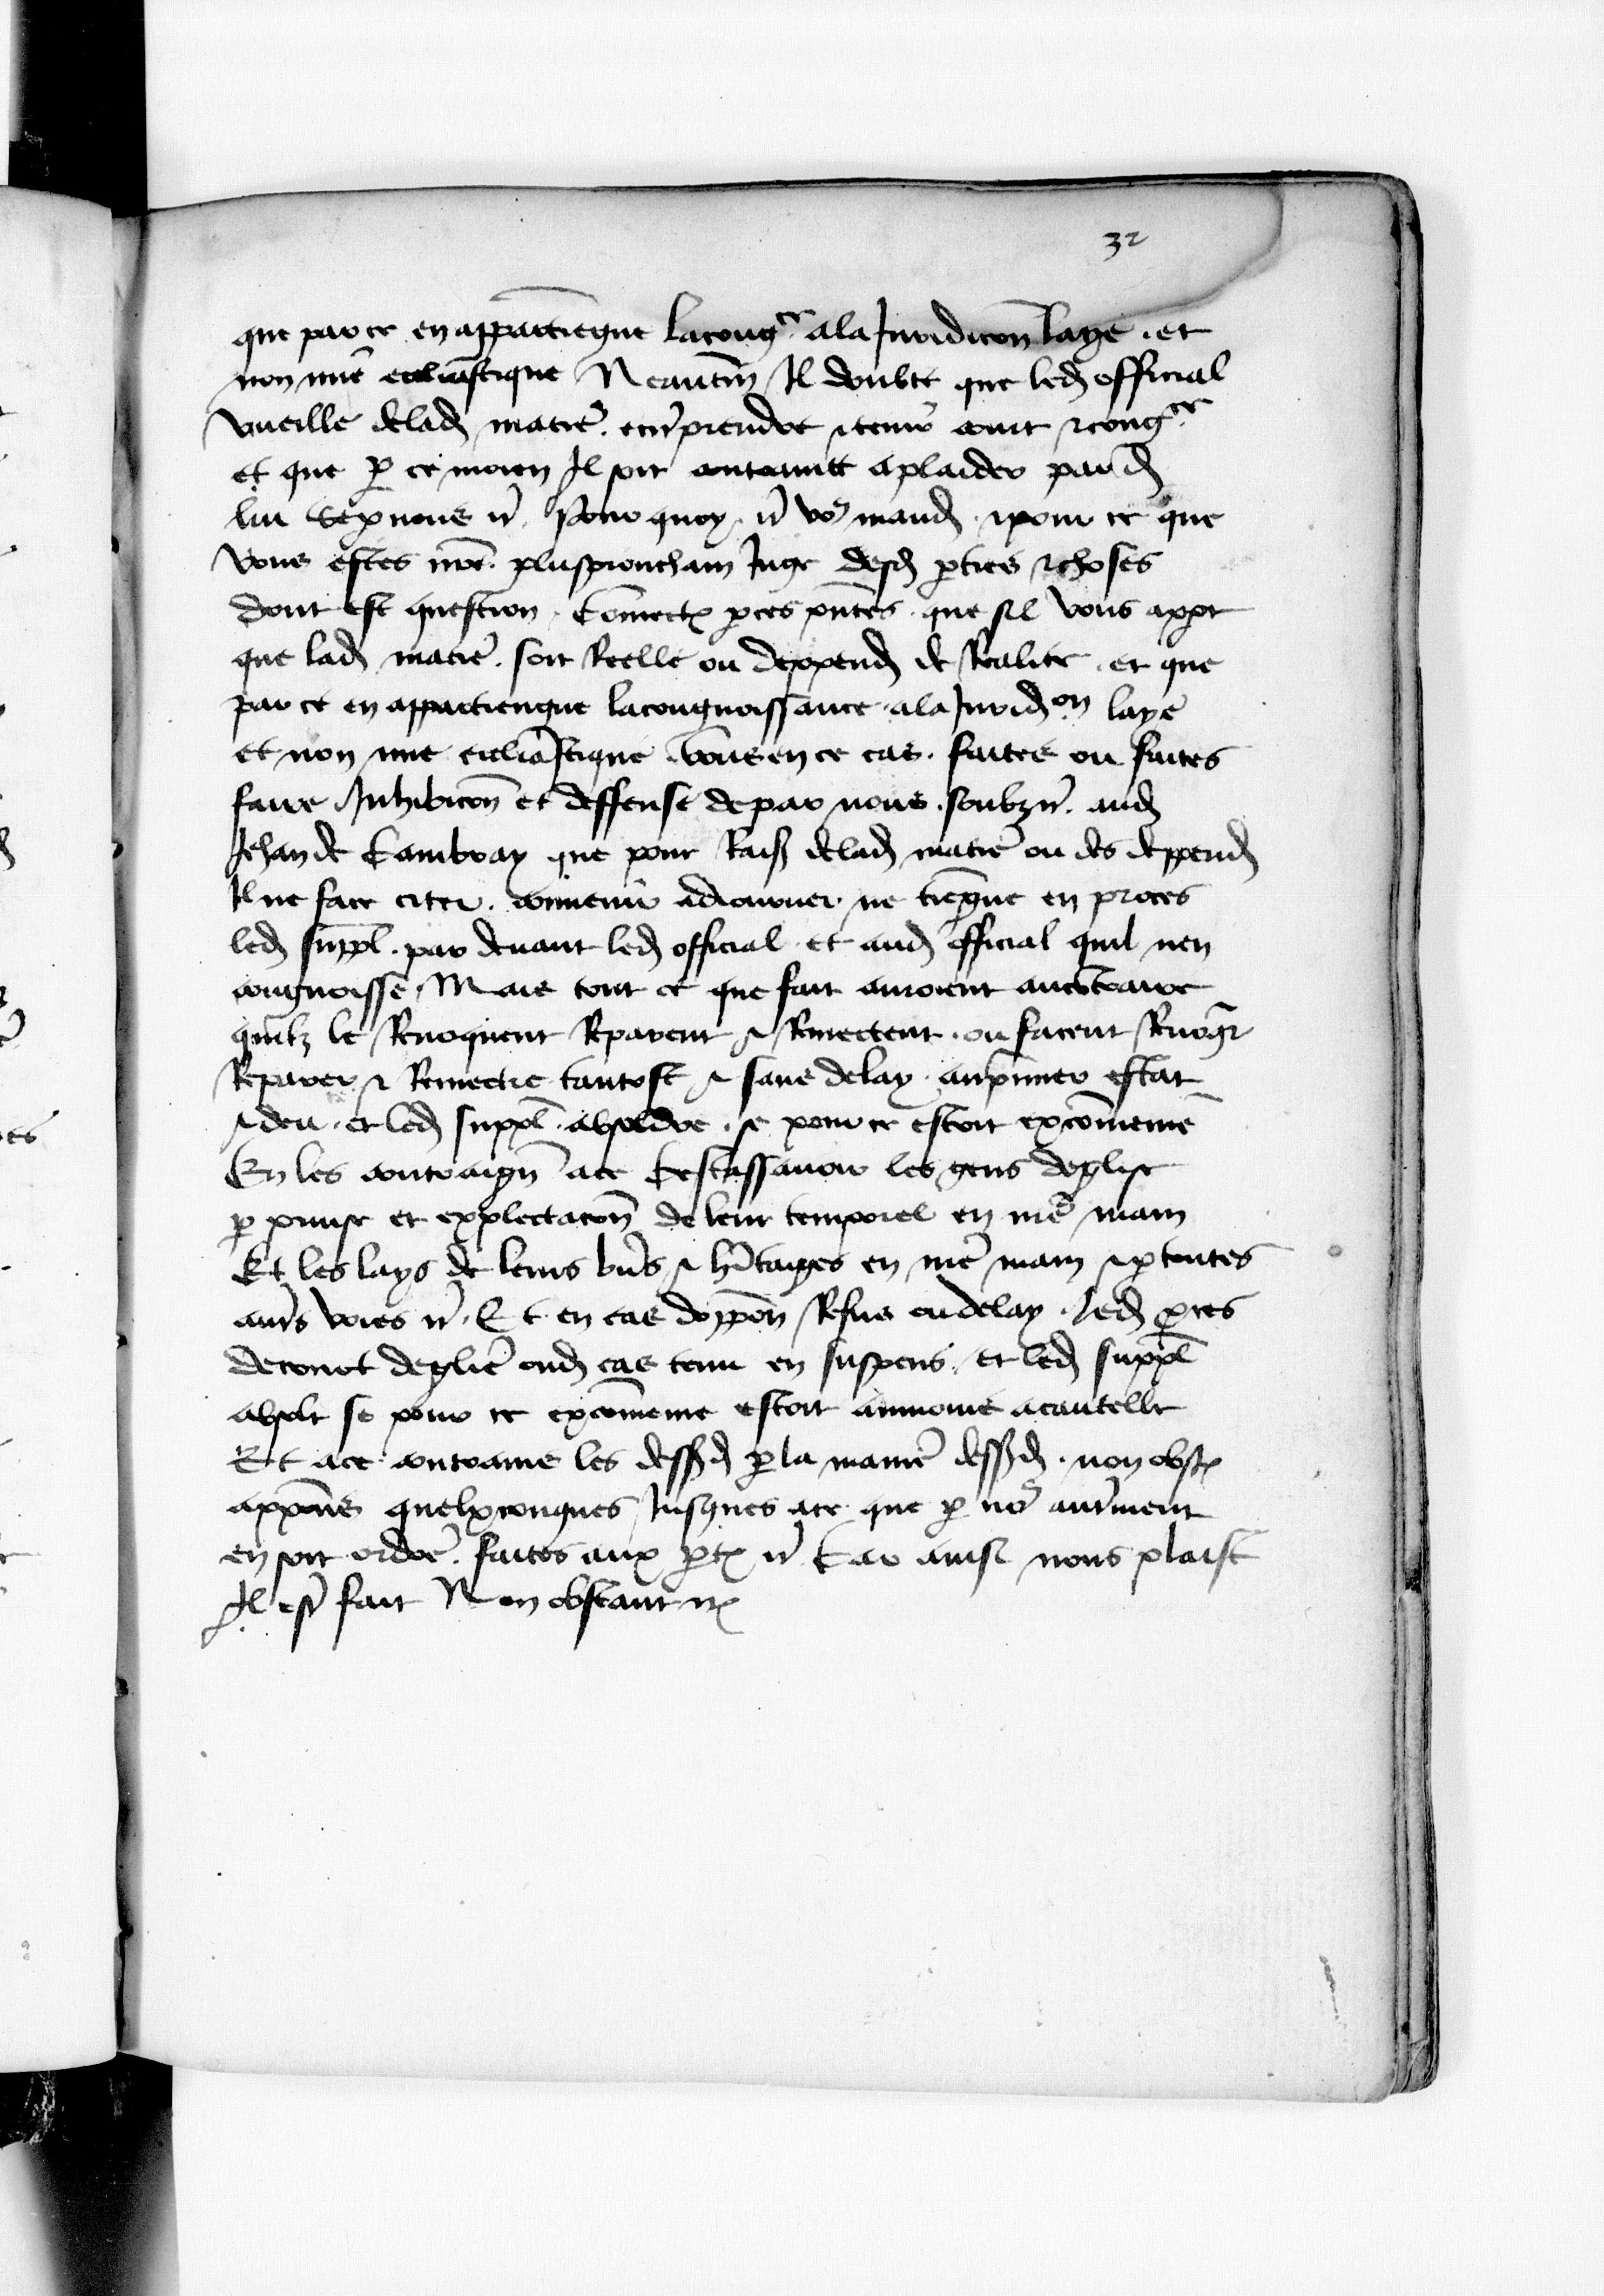 32
que par ce en appartiegne la congce a la Juridicon laye . et
non mie eccliastique Neautm Il doubte que led official
vueille de lad matie . entrprendre & tenir court & congce
et que p ce moien Il soit contraint a plaider par d
lui Se p nous n . Pour quoy . n vos mand . & pour ce que
vous estes nre . plus prouchain Juge desd pties & choses
dont est question . Comectx p ces pntes . que sil vous appt
que lad matie . soit Reelle ou deppend de Realite . et que
par ce en appartiengne la congnoissance . a la Juridon laye
et non mie eccliastique . vous en ce cas . faites ou faites
faire Inhibicon et deffense de par nous . soubz n . aud
Jehan de Cambray que pour Rais de lad matie ou des deppend
Il ne face citer . convenir adiourner ne tiegne en proces
led suppl . par devant led official . et aud official quil nen
congnoisse . Mais tout ce que fait auroient au contraire
quilz le Revoquent Reparent & Remectent . ou facent Revoqr
Reparer & Remectre tantost & sans delay . au pmier estat
& deu . et led suppl . absoldre . se pour ce estoit excomenie
En les contraign a ce Cestassavoir les gens deglise
p prinse et explectacon de leur temporel en nre main
Et les lays de leurs bns & hitaiges en nre main & p toutes
aurs voies n . Et en cas doppon Refus ou delay . led pces
de court deglie oud cas tenu en suspens . et led suppl
absolt se pour ce excomenie estoit a cautelle
Et a ce contrains les dessd p la manie dessd . non obstx
appons quelxconques Jusques a ce que p nos autrment
en soit ordre . faites aux ptx n Car ainsi nous plaist
Il estr fait Non obstant &cx